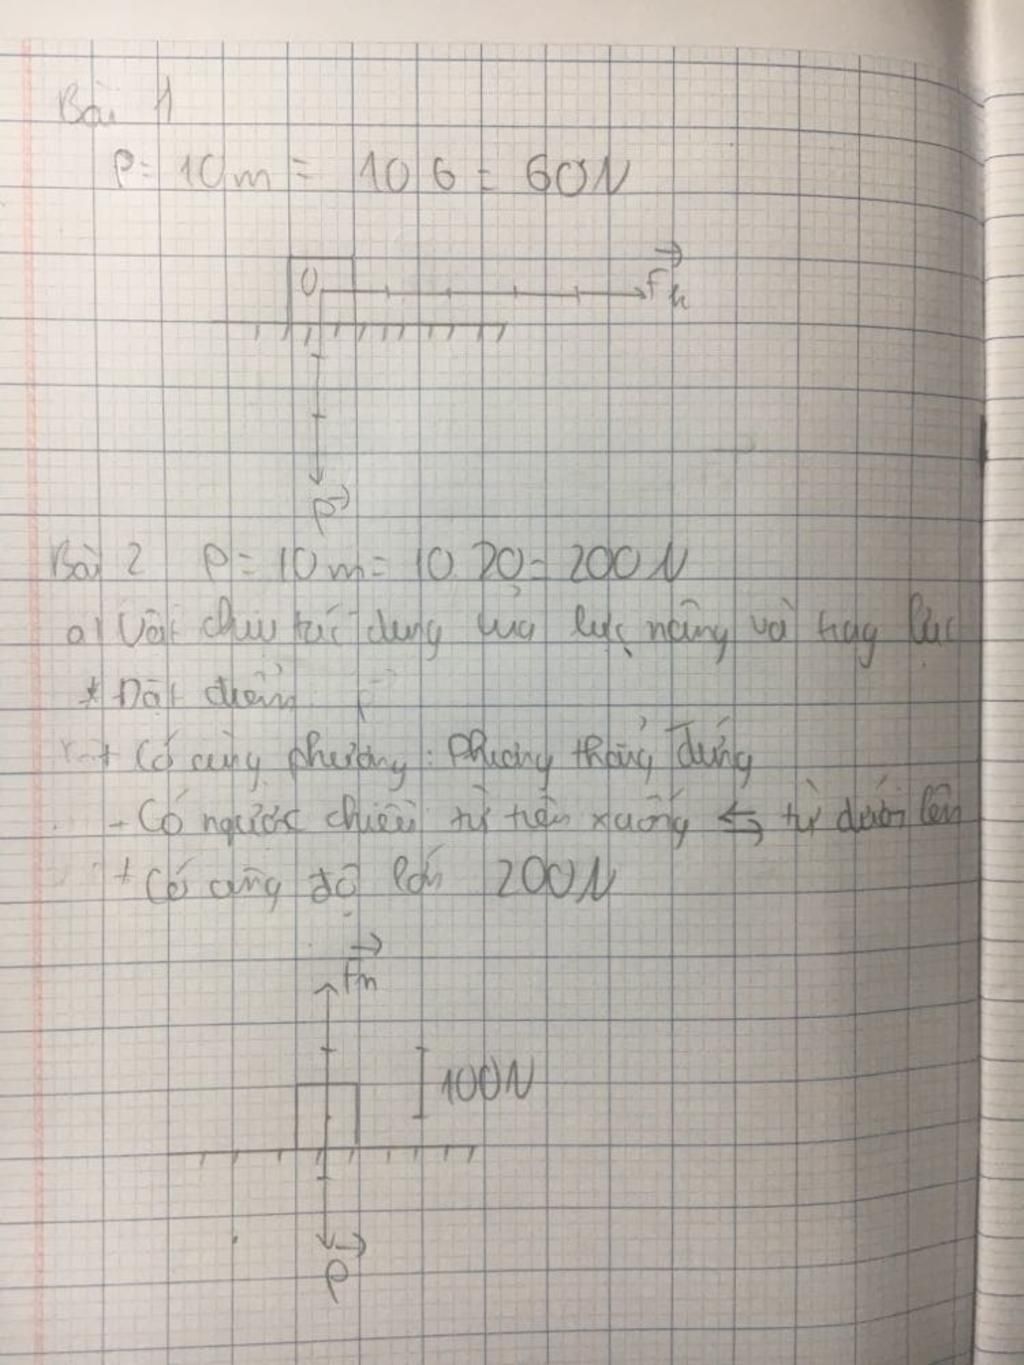 Bài 1
P = 10m = 10 6 = 60N
O
F k
P
Bài 2 P = 10m = 10.20 = 200N
a) Vật chịu tác dụng của lực nâng và lực
* Đặt điểm
+ Có cùng phương : Phương thẳng đứng
- Có ngược chiều từ trên xuống ⇆ từ dưới lên
+ Có cùng độ lớn 200N
Fn
100N
P